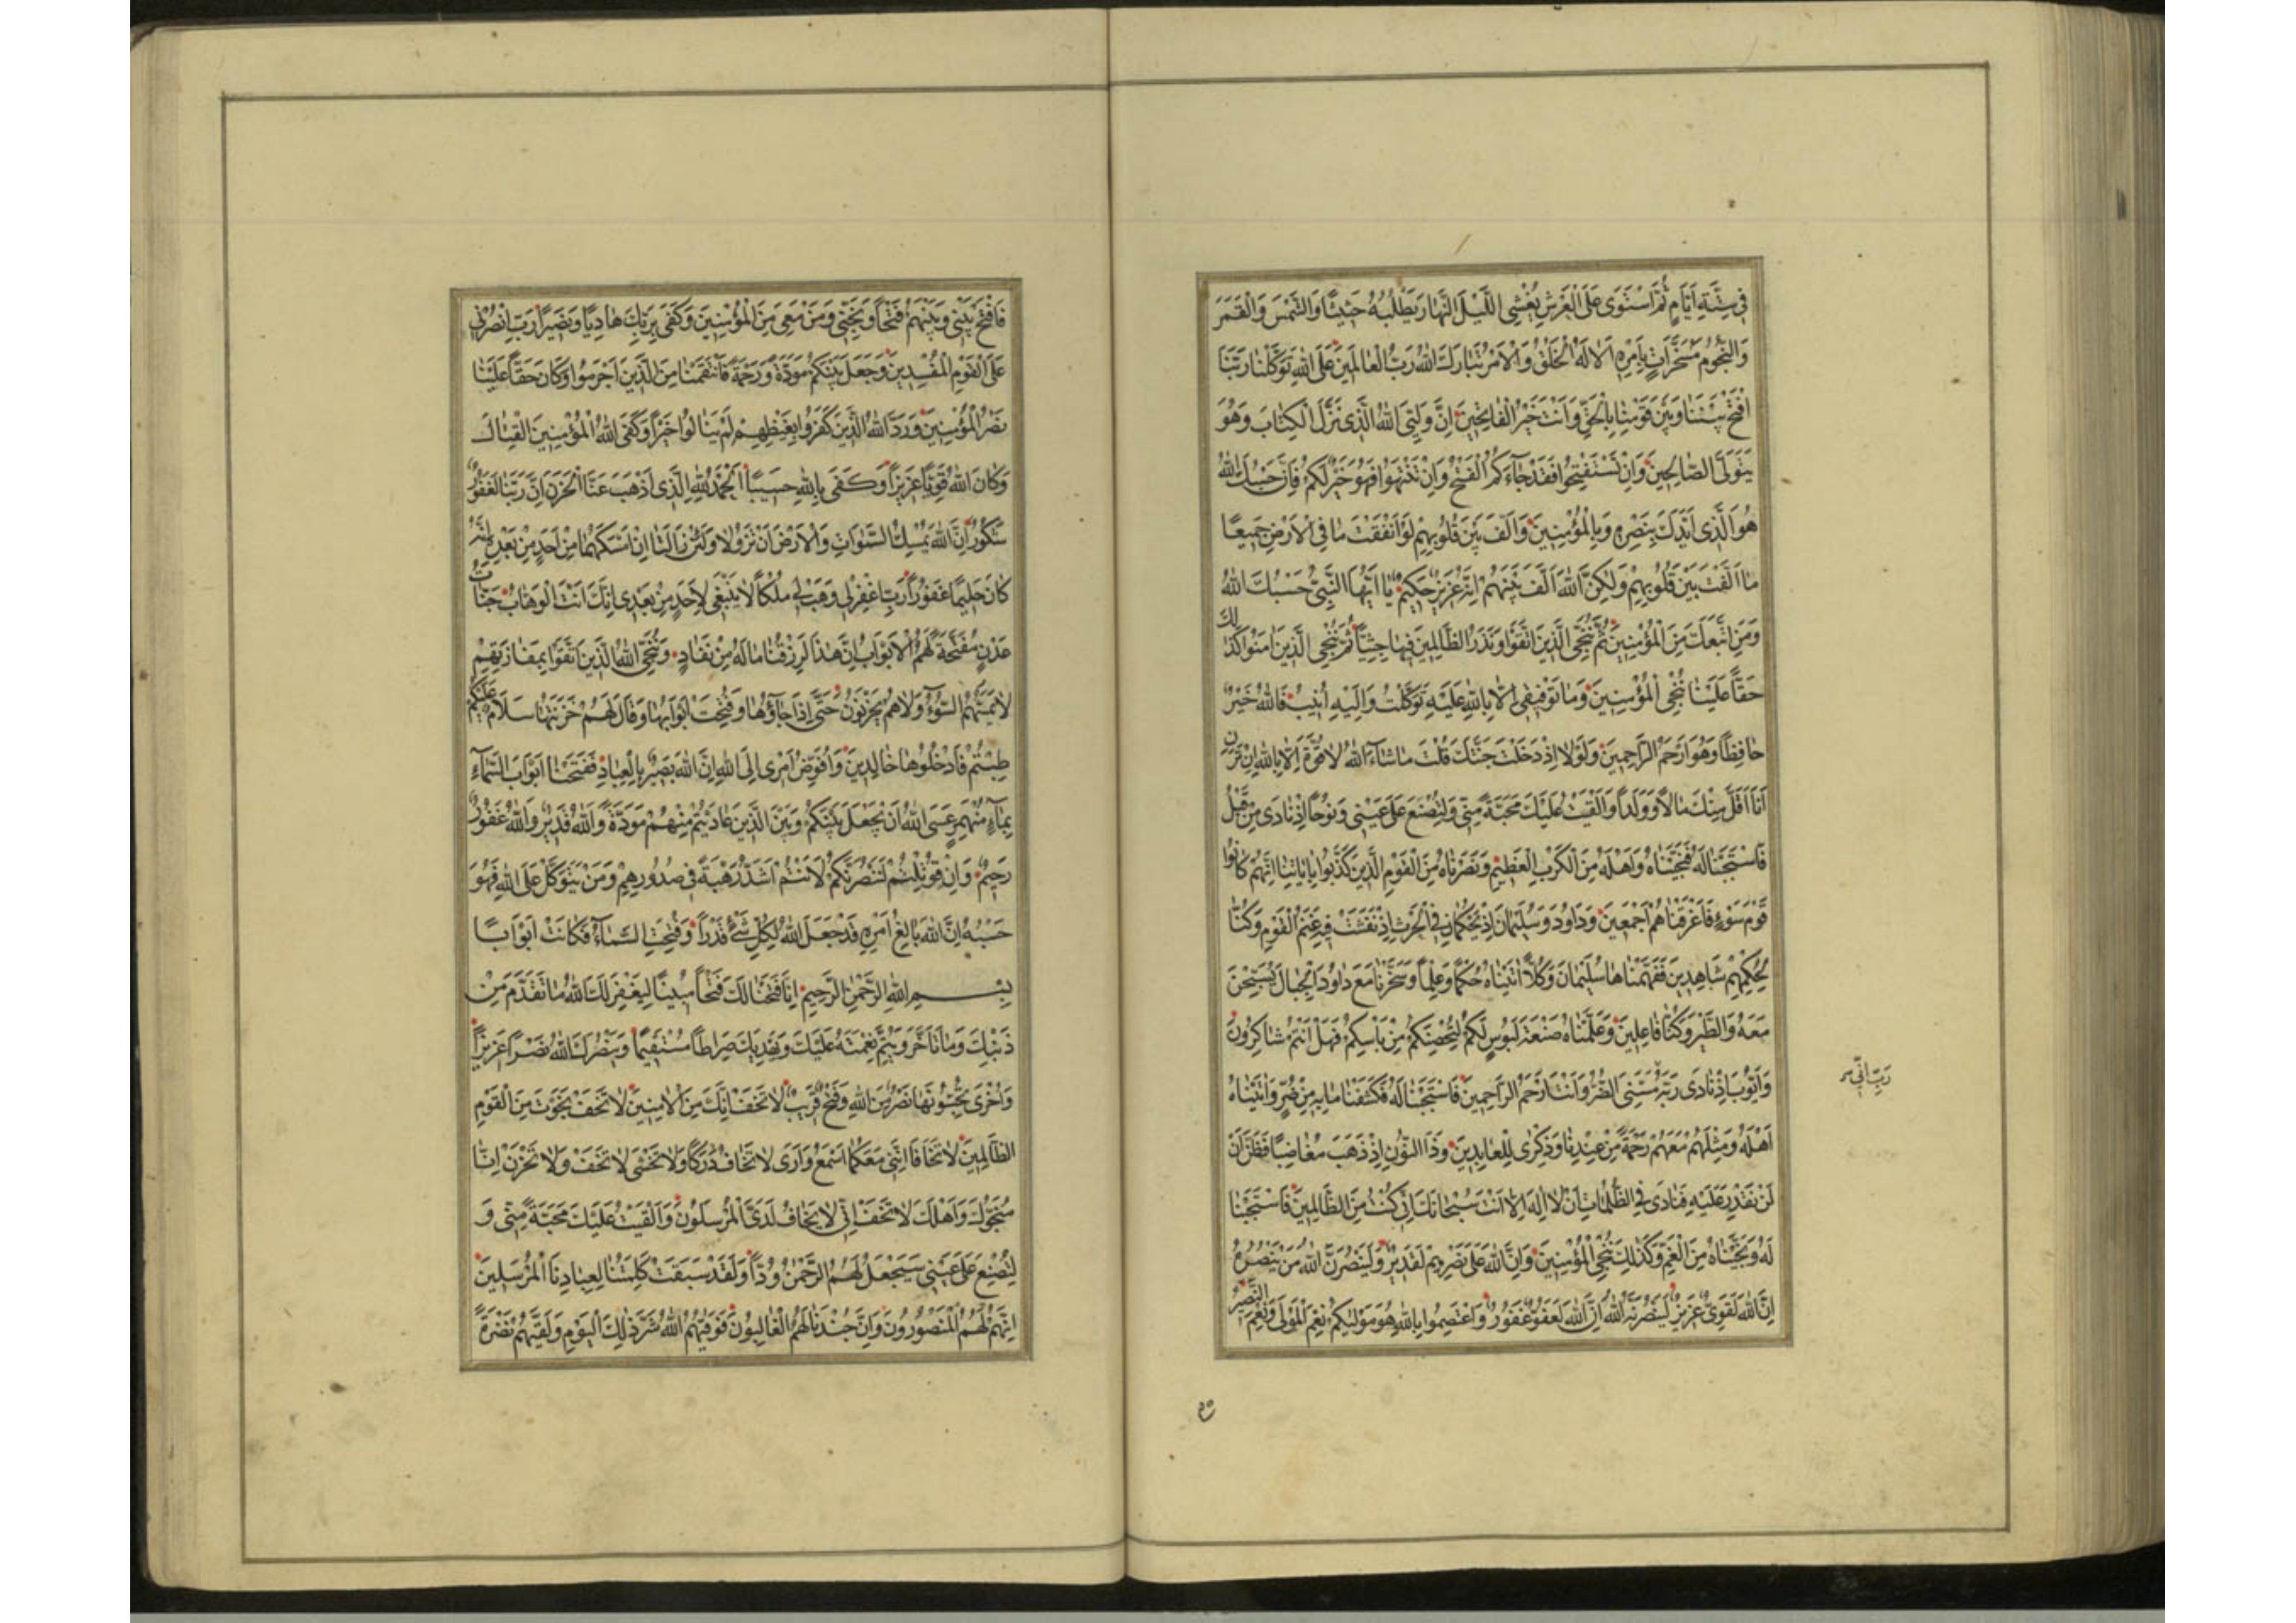 فِي سِتَّةِ اَيَّامٍ ثُمَّ اسْتَوَى عَلَى الْعَرْشِ يُغْشِى اللَّيْلَ النَّهَارَ يَطْلُبُهُ حَثِيثًا وَالشَّمْسَ وَالْقَمَرَ
وَالنُّجُومَ مُسَخَّرَاتٍ بِاَمْرِهِ اَلَا لَهُ الْخَلْقُ وَالْاَمْرُ تَبَارَكَ اللهُ رَبُّ الْعَالَمِينَ عَلَى اللهِ تَوَكَّلْنَا رَبَّنَا
افْتَحْ بَيْنَنَا وَبَيْنَ قَوْمِنَا بِالْحَقِّ وَاَنْتَ خَيْرُ الْفَاتِحِينَ اِنَّ وَلِيِّيَ اللهُ الَّذِى نَزَّلَ الْكِتَابَ وَهُوَ
يَتَوَلَّى الصَّالِحِينَ وَاِنْ تَسْتَفْتِحُوا فَقَدْ جَآءَكُمُ الْفَتْحُ وَاِنْ تَنْتَهُوا فَهُوَ خَيْرٌ لَكُمْ فَاِنَّ حَسْبَكَ اللهُ
هُوَ الَّذِى اَيَّدَكَ بِنَصْرِهِ وَبِالْمُؤْمِنِينَ وَاَلَّفَ بَيْنَ قُلُوبِهِمْ لَوْ اَنْفَقْتَ مَا فِى الْاَرْضِ جَمِيعًا
مَا اَلَّفْتَ بَيْنَ قُلُوبِهِمْ وَلَكِنَّ اللهَ اَلَّفَ بَيْنَهُمْ اِنَّهُ عَزِيزٌ حَكِيمٌ يَا اَيُّهَا النَّبِىُّ حَسْبُكَ اللهُ
وَمَنِ اتَّبَعَكَ مِنَ الْمُؤْمِنِينَ ثُمَّ نُنَجِّى الَّذِينَ اتَّقَوْا وَنَذَرُ الظَّالِمِينَ فِيهَا جِثِيًّا ثُمَّ نُنَجِّى الَّذِينَ اٰمَنُوا كَذٰلِكَ
حَقًّا عَلَيْنَا نُنْجِى الْمُؤْمِنِينَ وَمَا تَوْفِيقِى اِلَّا بِاللهِ عَلَيْهِ تَوَكَّلْتُ وَاِلَيْهِ اُنِيبُ فَاللهُ خَيْرٌ
حَافِظًا وَهُوَ اَرْحَمُ الرَّاحِمِينَ وَلَوْلَا اِذْ دَخَلْتَ جَنَّتَكَ قُلْتَ مَاشَآءَ اللهُ لَا قُوَّةَ اِلَّا بِاللهِ اِنْ تَرَنِ
اَنَا اَقَلَّ مِنْكَ مَالًا وَوَلَدًا وَاَلْقَيْتُ عَلَيْكَ مَحَبَّةً مِنِّى وَلِتُصْنَعَ عَلَى عَيْنِى وَنُوحًا اِذْ نَادَى مِنْ قَبْلُ
فَاسْتَجَبْنَا لَهُ فَنَجَّيْنَاهُ وَاَهْلَهُ مِنَ الْكَرْبِ الْعَظِيمِ وَنَصَرْنَاهُ مِنَ الْقَوْمِ الَّذِينَ كَذَّبُوا بِاٰيَاتِنَا اِنَّهُمْ كَانُوا
قَوْمَ سَوْءٍ فَاَغْرَقْنَاهُمْ اَجْمَعِينَ وَدَاوُدَ وَسُلَيْمَانَ اِذْ يَحْكُمَانِ فِى الْحَرْثِ اِذْ نَفَشَتْ فِيهِ غَنَمُ الْقَوْمِ وَكُنَّا
لِحُكْمِهِمْ شَاهِدِينَ فَفَهَّمْنَاهَا سُلَيْمَانَ وَكُلًّا اٰتَيْنَاهُ حُكْمًا وَعِلْمًا وَسَخَّرْنَا مَعَ دَاوُدَ الْجِبَالَ يُسَبِّحْنَ
مَعَهُ وَالطَّيْرَ وَكُنَّا فَاعِلِينَ وَعَلَّمْنَاهُ صَنْعَةَ لَبُوسٍ لَكُمْ لِتُحْصِنَكُمْ مِنْ بَاْسِكُمْ فَهَلْ اَنْتُمْ شَاكِرُونَ
وَاَيُّوبَ اِذْ نَادَى رَبَّهُ مَسَّنِىَ الضُّرُّ وَاَنْتَ اَرْحَمُ الرَّاحِمِينَ فَاسْتَجَبْنَا لَهُ فَكَشَفْنَا مَا بِهِ مِنْ ضُرٍّ وَاٰتَيْنَاهُ
رَبِّ اَنِّى
اَهْلَهُ وَمِثْلَهُمْ مَعَهُمْ رَحْمَةً مِنْ عِنْدِنَا وَذِكْرَى لِلْعَابِدِينَ وَذَا النُّونِ اِذْ ذَهَبَ مُغَاضِبًا فَظَنَّ اَنْ
لَنْ نَقْدِرَ عَلَيْهِ فَنَادَى فِى الظُّلُمَاتِ اَنْ لَا اِلَهَ اِلَّا اَنْتَ سُبْحَانَكَ اِنِّى كُنْتُ مِنَ الظَّالِمِينَ فَاسْتَجَبْنَا
لَهُ وَنَجَّيْنَاهُ مِنَ الْغَمِّ وَكَذٰلِكَ نُنْجِى الْمُؤْمِنِينَ وَاِنَّ اللهَ عَلَى نَصْرِهِمْ لَقَدِيرٌ وَلَيَنْصُرَنَّ اللهُ مَنْ يَنْصُرُهُ
اِنَّ اللهَ لَقَوِىٌّ عَزِيزٌ لَيَنْصُرَنَّهُ اللهُ اِنَّ اللهَ لَعَفُوٌّ غَفُورٌ وَاعْتَصِمُوا بِاللهِ هُوَ مَوْلٰيكُمْ نِعْمَ الْمَوْلَى وَنِعْمَ النَّصِيرُ
فَافْتَحْ بَيْنِى وَبَيْنَهُمْ فَتْحًا وَنَجِّنِى وَمَنْ مَعِىَ مِنَ الْمُؤْمِنِينَ وَكَفَى بِرَبِّكَ هَادِيًا وَنَصِيرًا رَبِّ انْصُرْنِى
عَلَى الْقَوْمِ الْمُفْسِدِينَ وَجَعَلَ بَيْنَكُمْ مَوَدَّةً وَرَحْمَةً فَانْتَقَمْنَا مِنَ الَّذِينَ اَجْرَمُوا وَكَانَ حَقًّا عَلَيْنَا
نَصْرُ الْمُؤْمِنِينَ وَرَدَّ اللهُ الَّذِينَ كَفَرُوا بِغَيْظِهِمْ لَمْ يَنَالُوا خَيْرًا وَكَفَى اللهُ الْمُؤْمِنِينَ الْقِتَالَ
وَكَانَ اللهُ قَوِيًّا عَزِيزًا وَكَفَى بِاللهِ حَسِيبًا اَلْحَمْدُ لِلّٰهِ الَّذِى اَذْهَبَ عَنَّا الْحَزَنَ اِنَّ رَبَّنَا لَغَفُورٌ
شَكُورٌ اِنَّ اللهَ يُمْسِكُ السَّمٰوَاتِ وَالْاَرْضَ اَنْ تَزُولَا وَلَئِنْ زَالَتَا اِنْ اَمْسَكَهُمَا مِنْ اَحَدٍ مِنْ بَعْدِهِ اِنَّهُ
كَانَ حَلِيمًا غَفُورًا رَبِّ اغْفِرْ لِى وَهَبْ لِى مُلْكًا لَا يَنْبَغِى لِاَحَدٍ مِنْ بَعْدِى اِنَّكَ اَنْتَ الْوَهَّابُ جَنَّاتِ
عَدْنٍ مُفَتَّحَةً لَهُمُ الْاَبْوَابُ اِنَّ هٰذَا لَرِزْقُنَا مَا لَهُ مِنْ نَفَادٍ وَيُنَجِّى اللهُ الَّذِينَ اتَّقَوْا بِمَفَازَتِهِمْ
لَا يَمَسُّهُمُ السُّوٓءُ وَلَا هُمْ يَحْزَنُونَ حَتَّى اِذَا جَآؤُهَا وَفُتِحَتْ اَبْوَابُهَا وَقَالَ لَهُمْ خَزَنَتُهَا سَلَامٌ عَلَيْكُمْ
طِبْتُمْ فَادْخُلُوهَا خَالِدِينَ وَاُفَوِّضُ اَمْرِى اِلَى اللهِ اِنَّ اللهَ بَصِيرٌ بِالْعِبَادِ فَفَتَحْنَا اَبْوَابَ السَّمَآءِ
بِمَآءٍ مُنْهَمِرٍ عَسَى اللهُ اَنْ يَجْعَلَ بَيْنَكُمْ وَبَيْنَ الَّذِينَ عَادَيْتُمْ مِنْهُمْ مَوَدَّةً وَاللهُ قَدِيرٌ وَاللهُ غَفُورٌ
رَحِيمٌ وَاِنْ قُوتِلْتُمْ لَنَنْصُرَنَّكُمْ لَاَنْتُمْ اَشَدُّ رَهْبَةً فِى صُدُورِهِمْ وَمَنْ يَتَوَكَّلْ عَلَى اللهِ فَهُوَ
حَسْبُهُ اِنَّ اللهَ بَالِغُ اَمْرِهِ قَدْ جَعَلَ اللهُ لِكُلِّ شَىْءٍ قَدْرًا وَفُتِحَتِ السَّمَآءُ فَكَانَتْ اَبْوَابًا
بِسْمِ اللهِ الرَّحْمٰنِ الرَّحِيمِ اِنَّا فَتَحْنَا لَكَ فَتْحًا مُبِينًا لِيَغْفِرَ لَكَ اللهُ مَا تَقَدَّمَ مِنْ
ذَنْبِكَ وَمَا تَاَخَّرَ وَيُتِمَّ نِعْمَتَهُ عَلَيْكَ وَيَهْدِيَكَ صِرَاطًا مُسْتَقِيمًا وَيَنْصُرَكَ اللهُ نَصْرًا عَزِيزًا
وَاُخْرَى تُحِبُّونَهَا نَصْرٌ مِنَ اللهِ وَفَتْحٌ قَرِيبٌ لَا تَخَفْ اِنَّكَ مِنَ الْاٰمِنِينَ لَا تَخَفْ نَجَوْتَ مِنَ الْقَوْمِ
الظَّالِمِينَ لَا تَخَافَا اِنَّنِى مَعَكُمَا اَسْمَعُ وَاَرَى لَا تَخَافُ دَرَكًا وَلَا تَخْشَى لَا تَخَفْ وَلَا تَحْزَنْ اِنَّا
مُنَجُّوكَ وَاَهْلَكَ لَا تَخَفْ اِنِّى لَا يَخَافُ لَدَىَّ الْمُرْسَلُونَ وَاَلْقَيْتُ عَلَيْكَ مَحَبَّةً مِنِّى وَ
لِتُصْنَعَ عَلَى عَيْنِى سَيَجْعَلُ لَهُمُ الرَّحْمٰنُ وُدًّا وَلَقَدْ سَبَقَتْ كَلِمَتُنَا لِعِبَادِنَا الْمُرْسَلِينَ
اِنَّهُمْ لَهُمُ الْمَنْصُورُونَ وَاِنَّ جُنْدَنَا لَهُمُ الْغَالِبُونَ فَوَقٰيهُمُ اللهُ شَرَّ ذٰلِكَ الْيَوْمِ وَلَقّٰيهُمْ نَضْرَةً